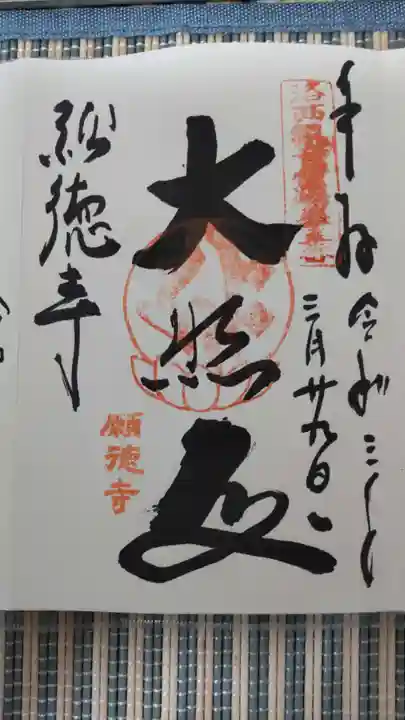 奉拝 令和三年
三月廿九日
大悲殿
願徳寺
願徳寺